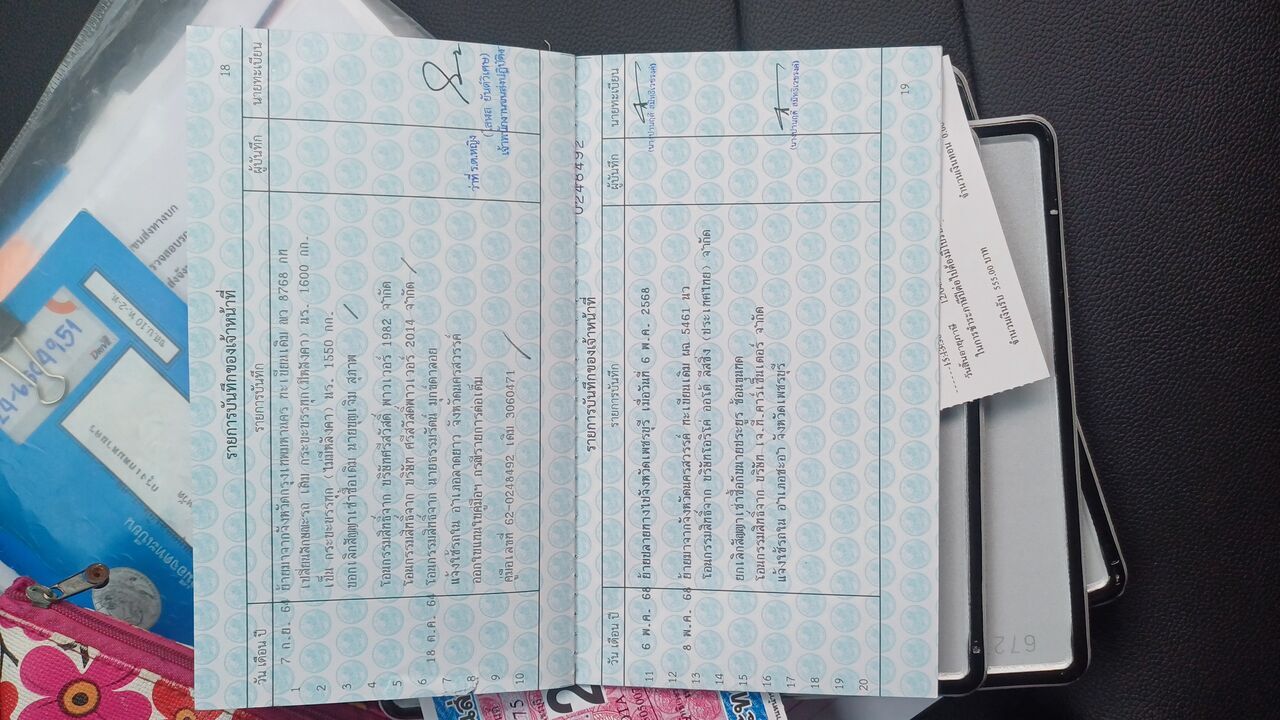 18
รายการบันทึกของเจ้าหน้าที่
วัน เดือน ปี รายการบันทึก ผู้บันทึก นายทะเบียน
7 ก.ย. 64 ย้ายมาจากจังหวัดกรุงเทพมหานคร ทะเบียนเดิม 8768 กท
1 เปลี่ยนลักษณะรถ เดิม กระบะบรรทุก(มีหลังคา) นร. 1600 กก.
2 เป็น กระบะบรรทุก (ไม่มีหลังคา) นร. 1550 กก.
3 บอกเลิกสัญญาเช่าซื้อเดิม นายบุญเจิม สุภาพ
4 โอนกรรมสิทธิ์จาก บริษัทศรีสวัสดิ์ พาวเวอร์ 1982 จำกัด
5 โอนกรรมสิทธิ์จาก บริษัท ศรีสวัสดิ์พาวเวอร์ 2014 จำกัด
6 18 ต.ค. 64 โอนกรรมสิทธิ์จาก นายธรรมรัตน์ มุกข์ดาลอย
7 แจ้งใช้รถใน อำเภอลาดยาว จังหวัดนครสวรรค์
8 ออกใบแทนใบคู่มือฯ กรณีรายการต่อเต็ม
9 คู่มือเลขที่ 62-0248492 เดิม 3060471
10
ว่าที่ ร.ต.หญิง
(เสาวลี ยันต์วิเศษ)
เจ้าพนักงานขนส่งปฏิบัติงาน
0248492
รายการบันทึกของเจ้าหน้าที่
วัน เดือน ปี รายการบันทึก ผู้บันทึก นายทะเบียน
11 6 พ.ค. 68 ย้ายปลายทางไปจังหวัดเพชรบุรี เมื่อวันที่ 6 พ.ค. 2568
12
13 8 พ.ค. 68 ย้ายมาจากจังหวัดนครสวรรค์ ทะเบียนเดิม ผฉ 5461 นว
14 โอนกรรมสิทธิ์จาก บริษัทโอริโค่ ออโต้ ลีสซิ่ง (ประเทศไทย) จำกัด
15 ยกเลิกสัญญาเช่าซื้อกับนายประยูร ซ้อนขุนทด
16 โอนกรรมสิทธิ์จาก บริษัท เจ.ที.คาร์เซ็นเตอร์ จำกัด
17 แจ้งใช้รถใน อำเภอชะอำ จังหวัดเพชรบุรี
18
19
20
19
672
จำนวนเงินรับ 555.00 บาท
จำนวนเงินทอน 0.00
กรุงเทพมหานคร